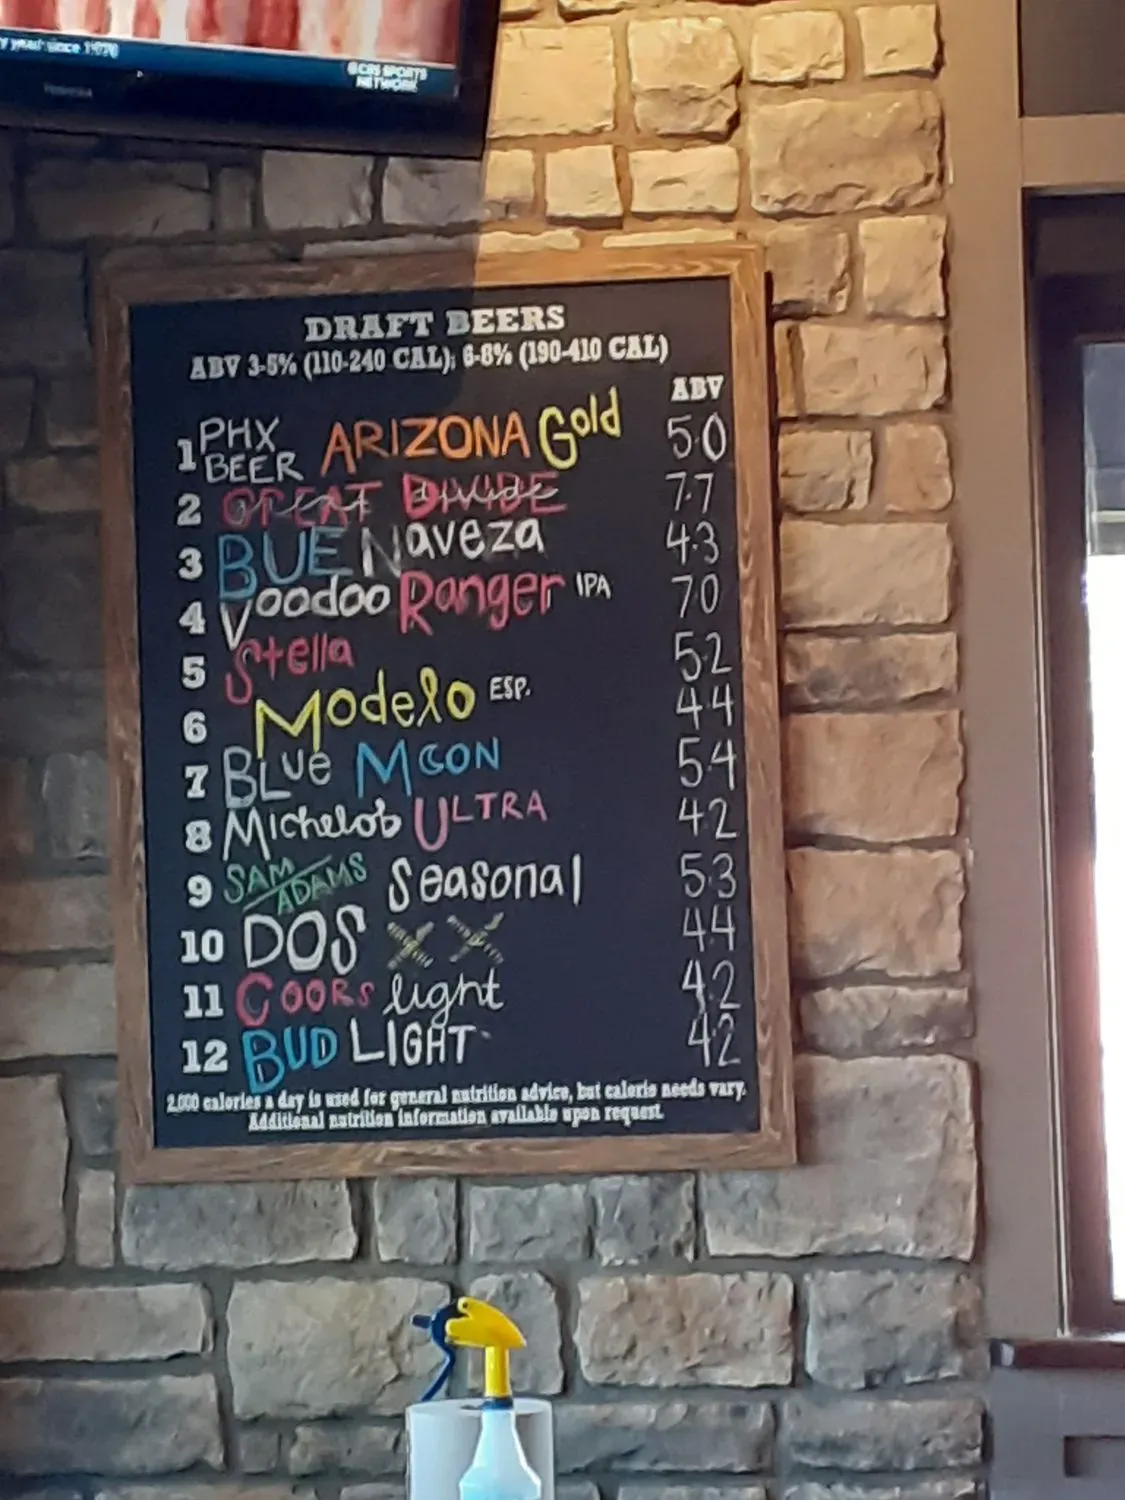 year since 1970
CBS SPORTS
NETWORK
TOSHIBA
DRAFT BEERS
ABV 3-5% (110-240 CAL); 6-8% (190-410 CAL)
ABV
1 PHX BEER ARIZONA Gold 5.0
2 GREAT DIVIDE 7.7
3 BUENaveza 4.3
4 Voodoo Ranger IPA 7.0
5 Stella 5.2
6 Modelo ESP. 4.4
7 BLue MOON 5.4
8 Michelob ULTRA 4.2
9 SAM ADAMS Seasonal 5.3
10 DOS XX 4.4
11 COORS light 4.2
12 BUD LIGHT 4.2
2,000 calories a day is used for general nutrition advice, but calorie needs vary.
Additional nutrition information available upon request.